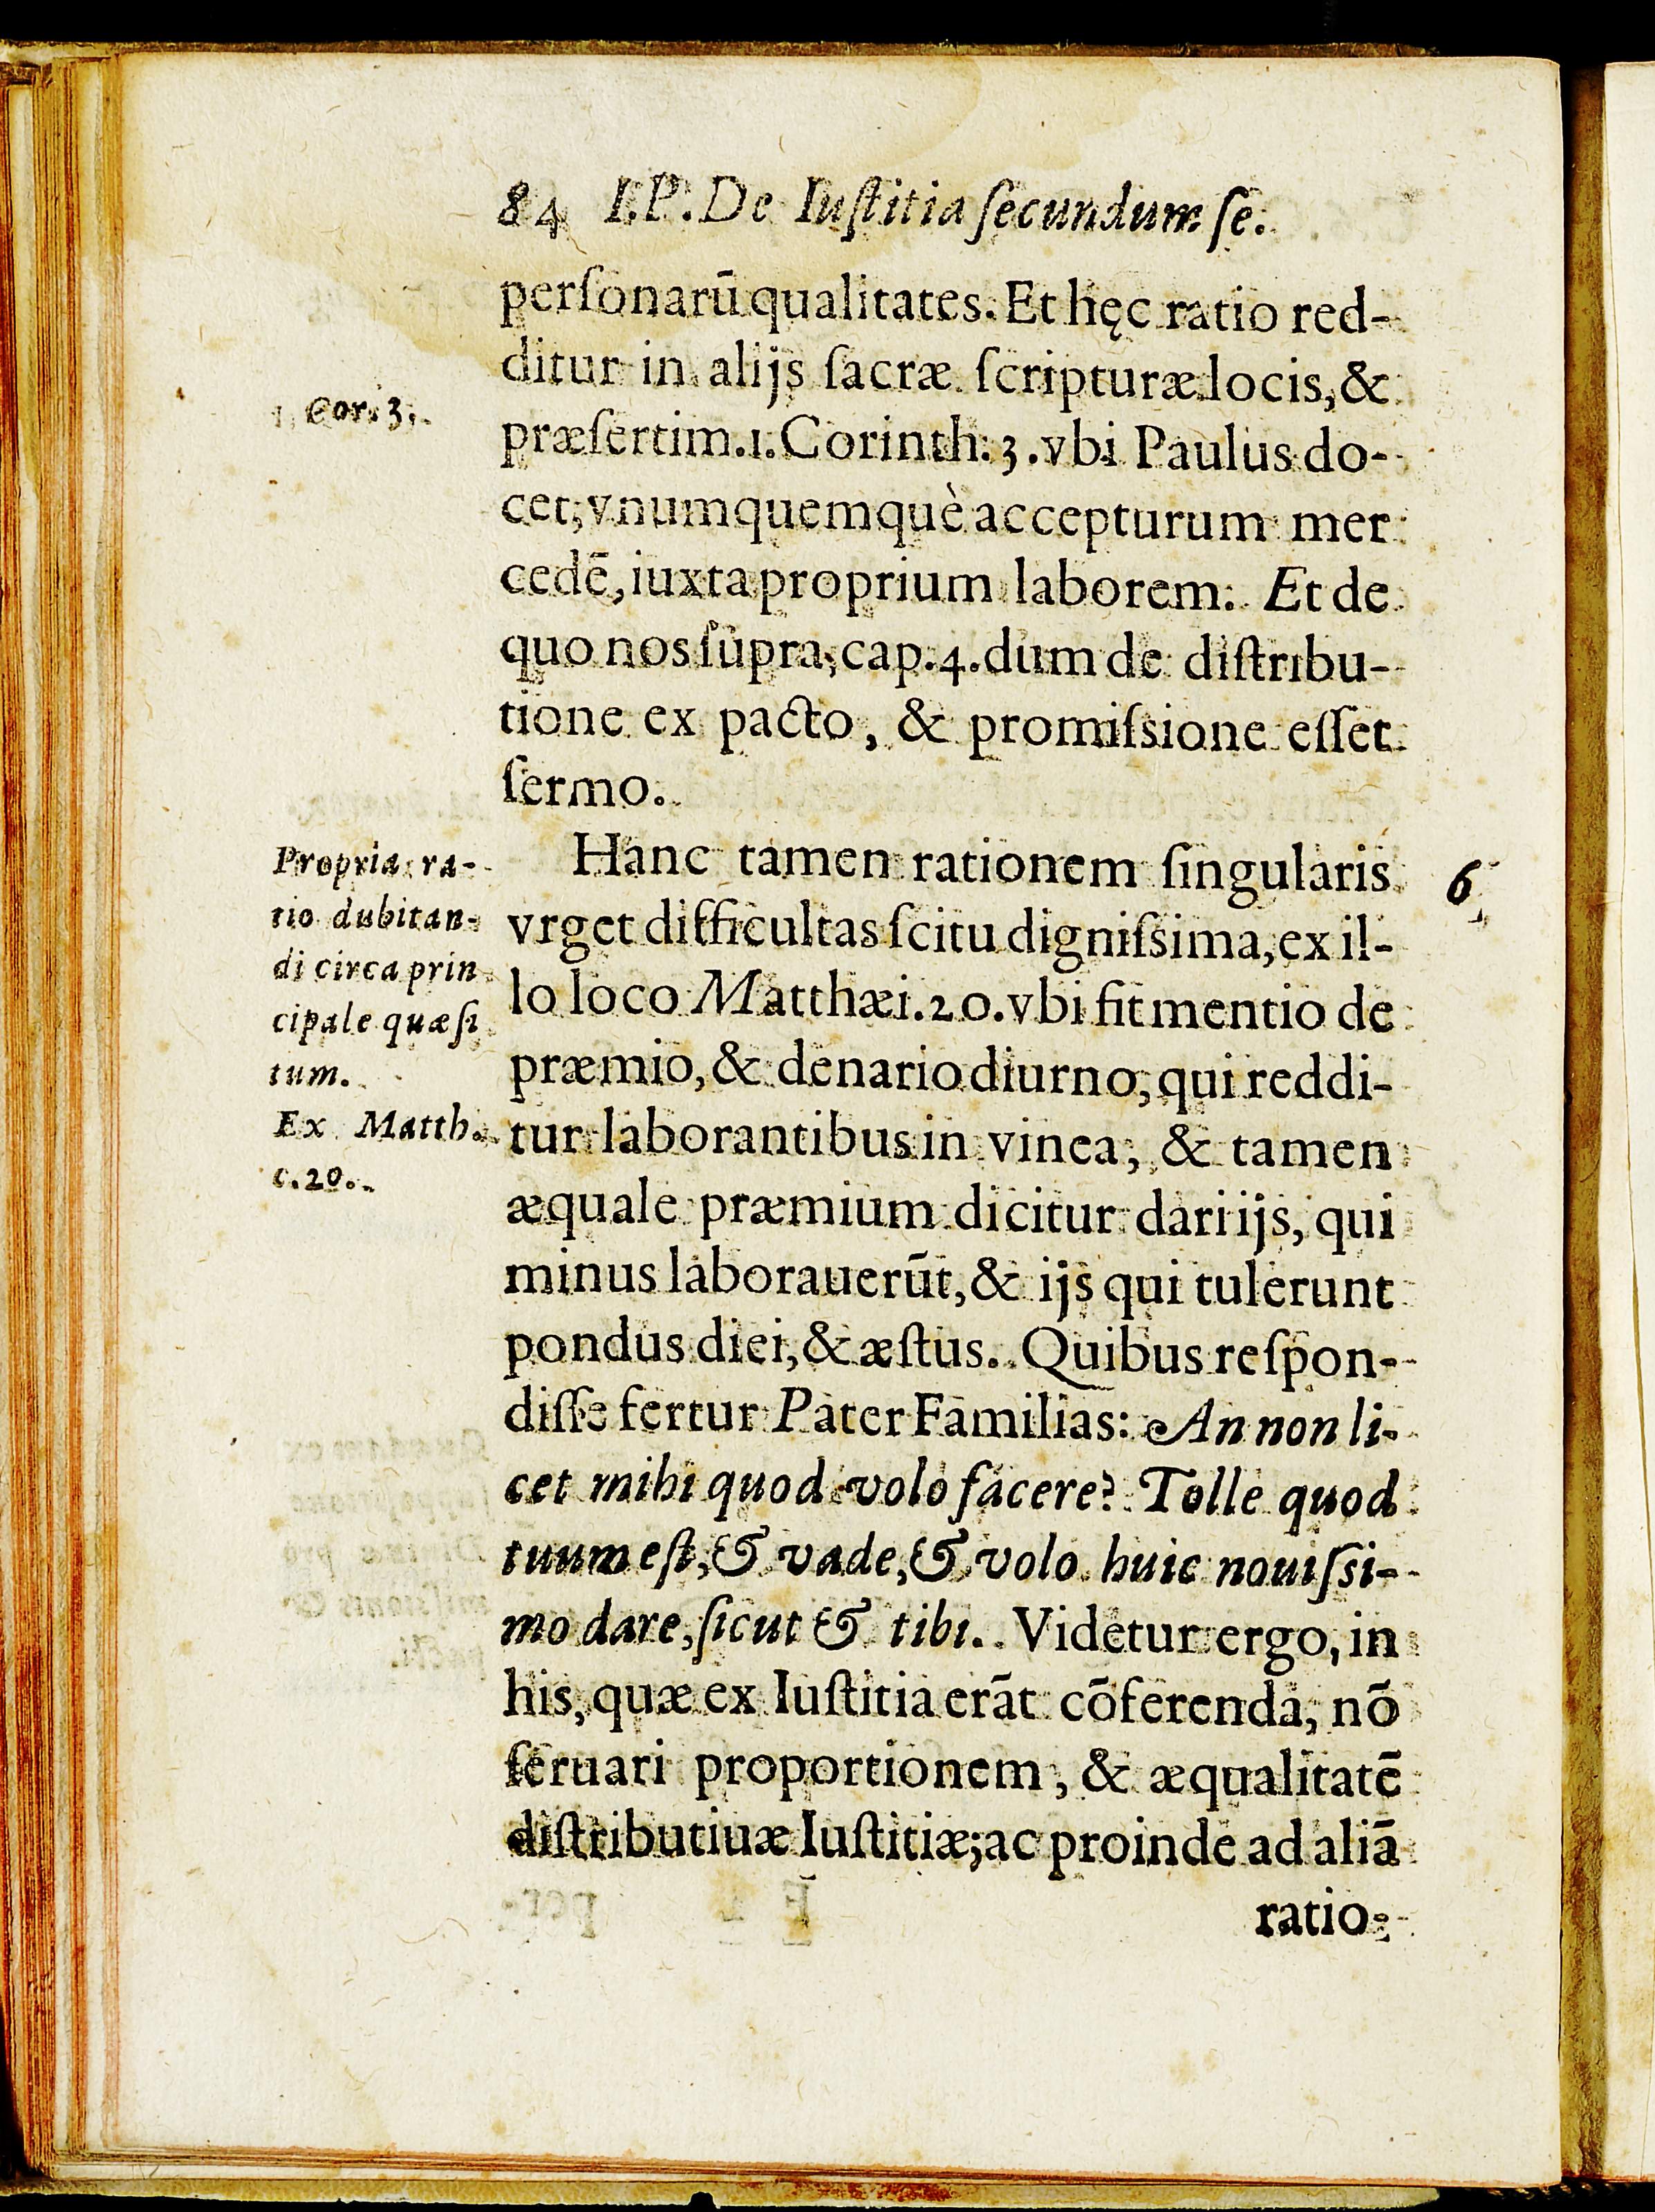 84 I.P. De Iuſtitia ſecundum ſe.
perſonarū qualitates. Et hęc ratio red-
ditur in alijs ſacræ ſcripturæ locis, &
præſertim. 1. Corinth. 3. vbi Paulus do-
cet, vnumquemquè accepturum mer
cedē, iuxta proprium laborem. Et de
quo nos ſupra, cap. 4. dum de diſtribu-
tione ex pacto, & promiſsione eſſet
ſermo.
Hanc tamen rationem ſingularis
vrget difficultas ſcitu digniſsima, ex il-
lo loco Matthæi. 20. vbi fit mentio de
præmio, & denario diurno, qui reddi-
tur laborantibus in vinea, & tamen
æquale præmium dicitur dari ijs, qui
minus laborauerūt, & ijs qui tulerunt
pondus diei, & æſtus. Quibus reſpon-
diſſe fertur Pater Familias: An non li-
cet mihi quod volo facere? Tolle quod
tuum eſt, & vade, & volo huic nouiſsi-
mo dare, ſicut & tibi. Videtur ergo, in
his, quæ ex Iuſtitia erāt cōferenda, nō
ſeruari proportionem, & æqualitatē
diſtributiuæ Iuſtitiæ; ac proinde ad aliā
ratio-
1. Cor. 3.
Propria ra-
tio dubitan-
di circa prin
cipale quæſi
tum.
Ex Matth.
c. 20.
6